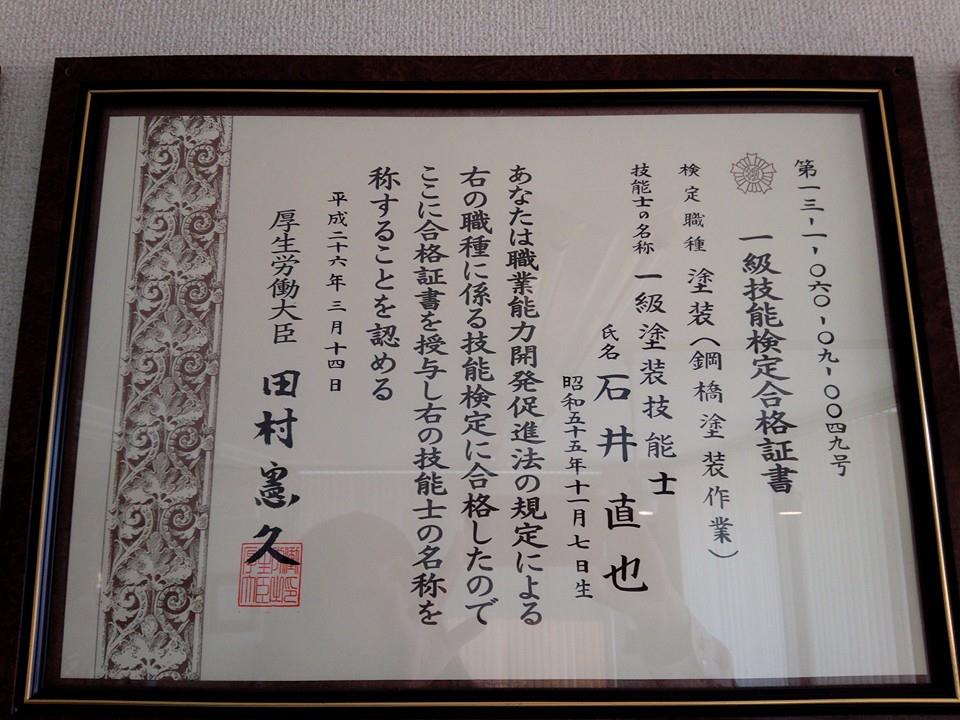 第一三-一-〇六〇-〇九-〇〇四九号
一級技能検定合格証書
検定職種 塗装(鋼橋塗装作業)
技能士の名称 一級塗装技能士
氏名 石井直也
昭和五十五年十一月七日生
あなたは職業能力開発促進法の規定による
右の職種に係る技能検定に合格したので
ここに合格証書を授与し右の技能士の名称を
称することを認める
平成二十六年三月十四日
厚生労働大臣 田村憲久